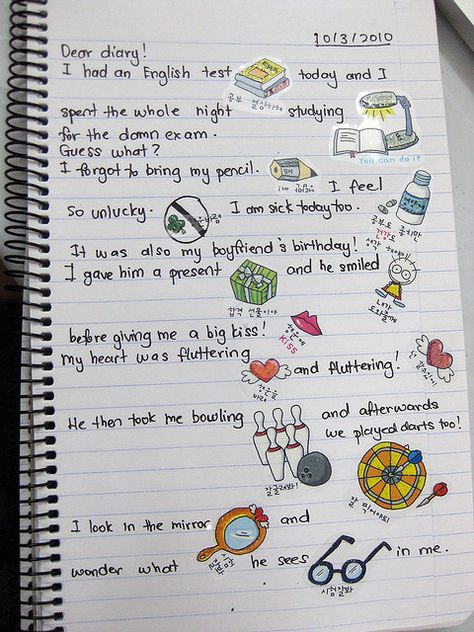 10/3/2010
Dear diary!
I had an English test today and I
spent the whole night studying
You can do it
for the damn exam.
Guess what?
I forgot to bring my pencil. I feel
So unlucky. I am sick today too.
It was also my boyfriend's birthday!
I gave him a present and he smiled
합격 선물이야
before giving me a big kiss!
KISS
my heart was fluttering and fluttering!
He then took me bowling and afterwards
we played darts too!
잘 굴러봐!
I look in the mirror and
wonder what he sees in me.
시험잘봐